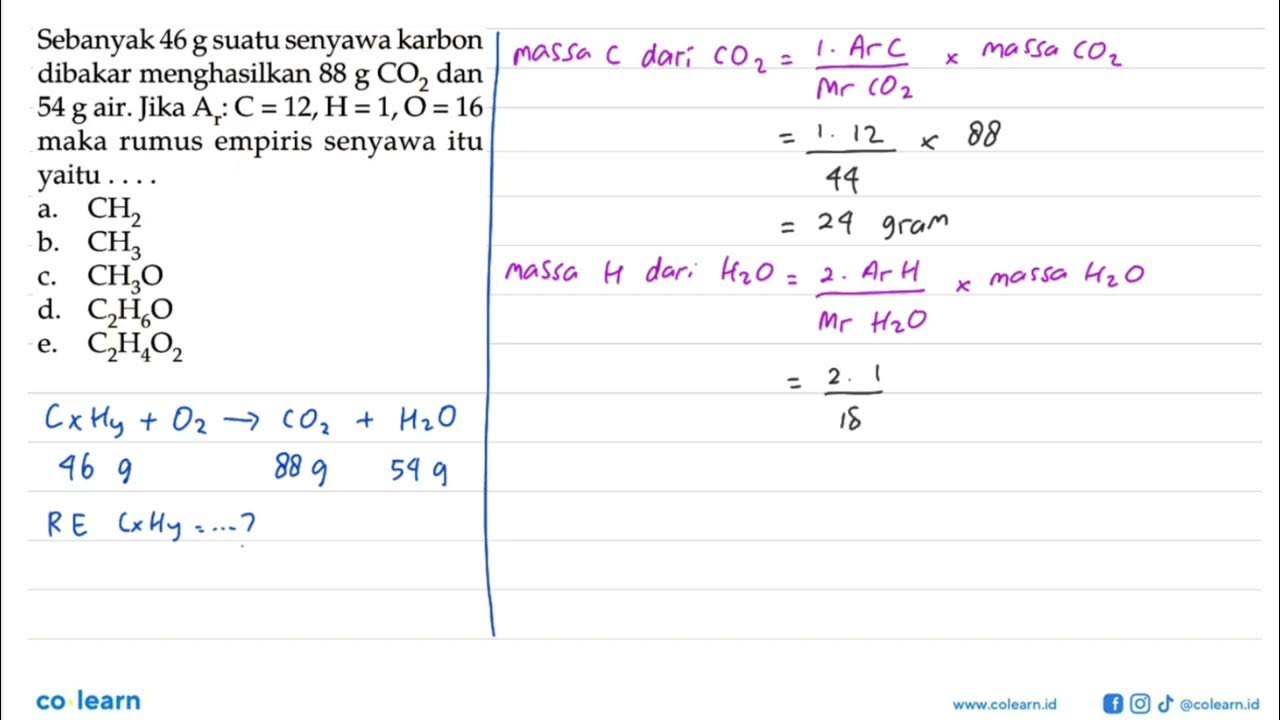 Sebanyak 46 g suatu senyawa karbon
dibakar menghasilkan 88 g CO₂ dan
54 g air. Jika Aᵣ: C = 12, H = 1, O = 16
maka rumus empiris senyawa itu
yaitu . . . .
a. CH₂
b. CH₃
c. CH₃O
d. C₂H₆O
e. C₂H₄O₂
CxHy + O₂ → CO₂ + H₂O
46 g 88 g 54 g
RE CxHy = ...?
massa C dari CO₂ = 1. Ar C / Mr CO₂ x massa CO₂
= 1. 12 / 44 x 88
= 24 gram
massa H dari H₂O = 2. Ar H / Mr H₂O x massa H₂O
= 2. 1 / 18
co·learn
www.colearn.id
@colearn.id